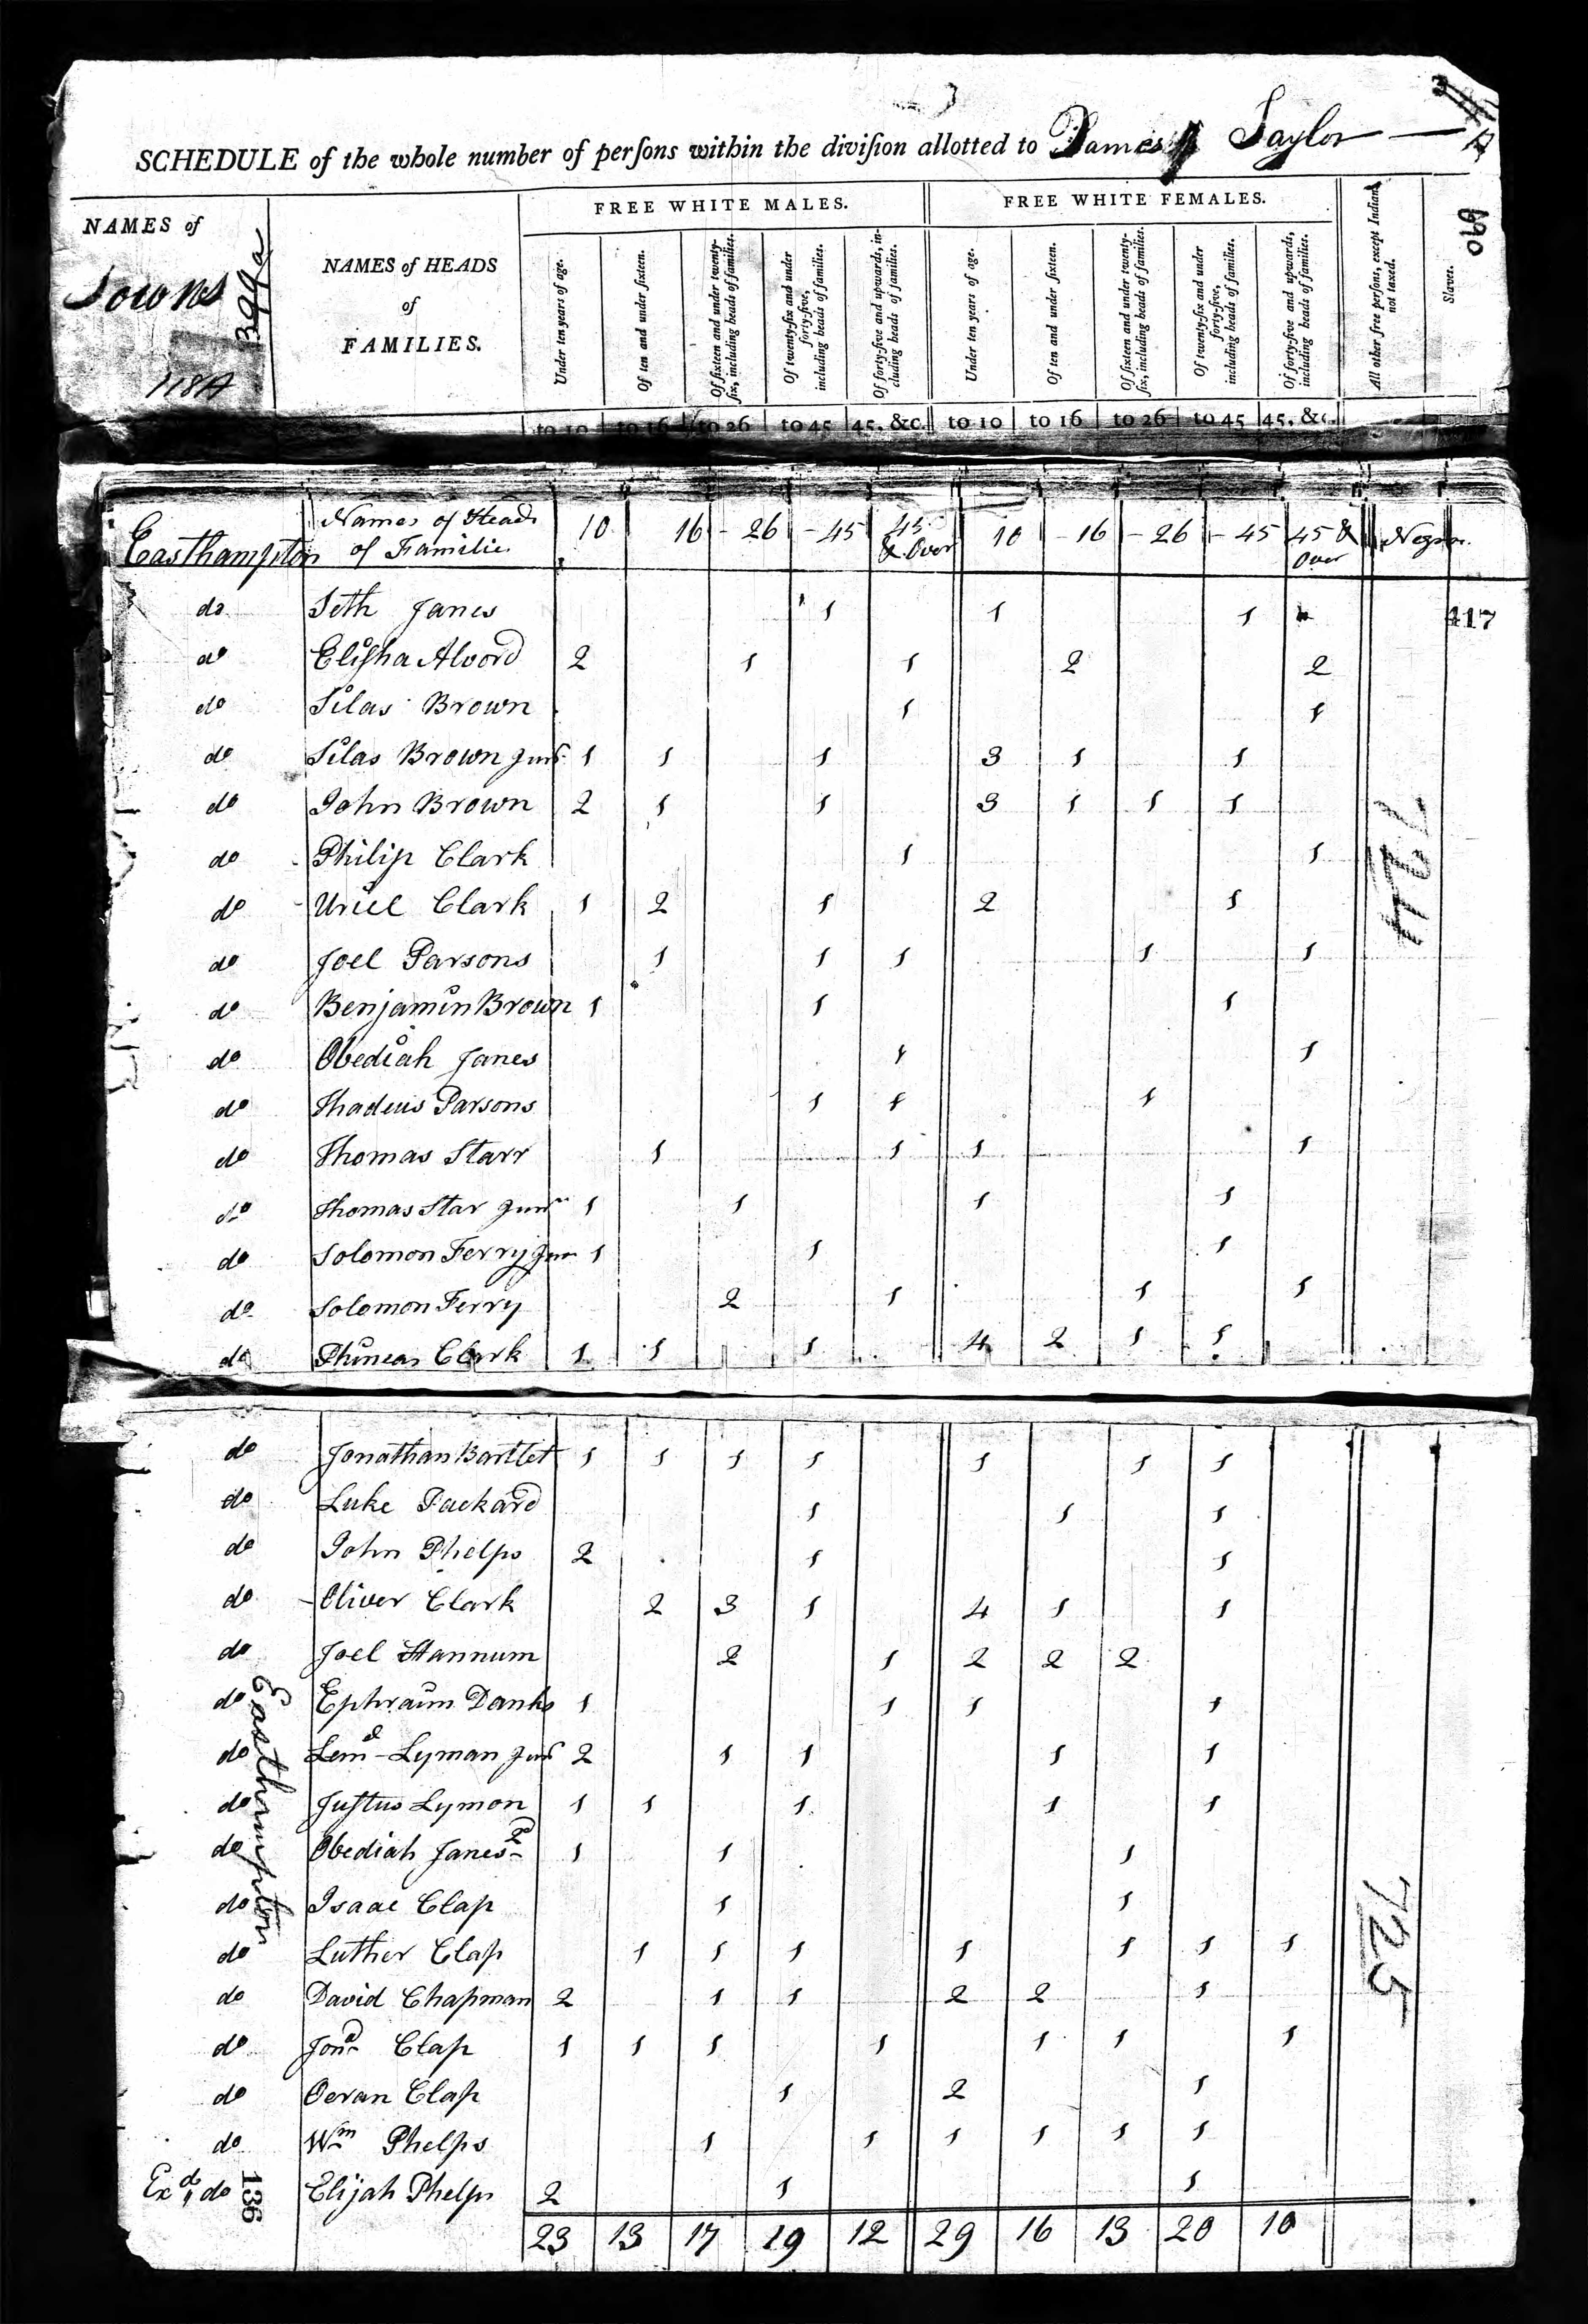 SCHEDULE of the whole number of perſons within the diviſion allotted to James Taylor
NAMES of
Towns
399a
118A
NAMES of HEADS
of
FAMILIES.
FREE WHITE MALES.
FREE WHITE FEMALES.
Under ten years of age.
Of ten and under ſixteen.
Of ſixteen and under twenty-ſix, including heads of families.
Of twenty-ſix and under forty-five, including heads of families.
Of forty-five and upwards, including heads of families.
Under ten years of age.
Of ten and under ſixteen.
Of ſixteen and under twenty-ſix, including heads of families.
Of twenty-ſix and under forty-five, including heads of families.
Of forty-five and upwards, including heads of families.
All other free perſons, except Indians not taxed.
Slaves.
690
to 10 to 16 to 26 to 45 45, &c. to 10 to 16 to 26 to 45 45, &c.
Easthampton Names of Heads of Familie 10 16 - 26 - 45 45 & Over 10 - 16 - 26 - 45 45 & Over
do Seth Janes 1 1 1
417
do Elisha Alvord 2 1 1 2 2
do Silas Brown 1 1
do Silas Brown Junr 1 1 1 3 1 1
do John Brown 2 1 1 3 1 1 1
724
do Philip Clark 1 1
do Uriel Clark 1 2 1 2 1
do Joel Parsons 1 1 1 1 1
do Benjamin Brown 1 1 1
do Obediah Janes 1 1
do Thadeus Parsons 1 1 1
do Thomas Starr 1 1 1 1
do Thomas Star Junr 1 1 1 1
do Solomon Ferry Jun 1 1 1
do Solomon Ferry 2 1 1 1
do Phineas Clark 1 1 1 4 2 1 1
do Jonathan Bartlet 1 1 1 1 1 1 1
do Luke Packard 1 1 1
do John Phelps 2 1 1
do Oliver Clark 2 3 1 4 1 1
do Joel Hannum 2 1 2 2 2
do Ephraim Danks 1 1 1 1
do Leml Lyman Junr 2 1 1 1 1
do Justus Lymon 1 1 1 1 1
do Obediah Janes 2d 1 1 1
do Isaac Clap 1 1
Easthampton
do Luther Clap 1 1 1 1 1 1 1
725
do David Chapman 2 1 1 2 2 1
do Jona Clap 1 1 1 1 1 1 1
do Ocran Clap 1 2 1
do Wm Phelps 1 1 1 1 1 1
Exd do Elijah Phelps 2 1 1
136
23 13 17 19 12 29 16 13 20 10